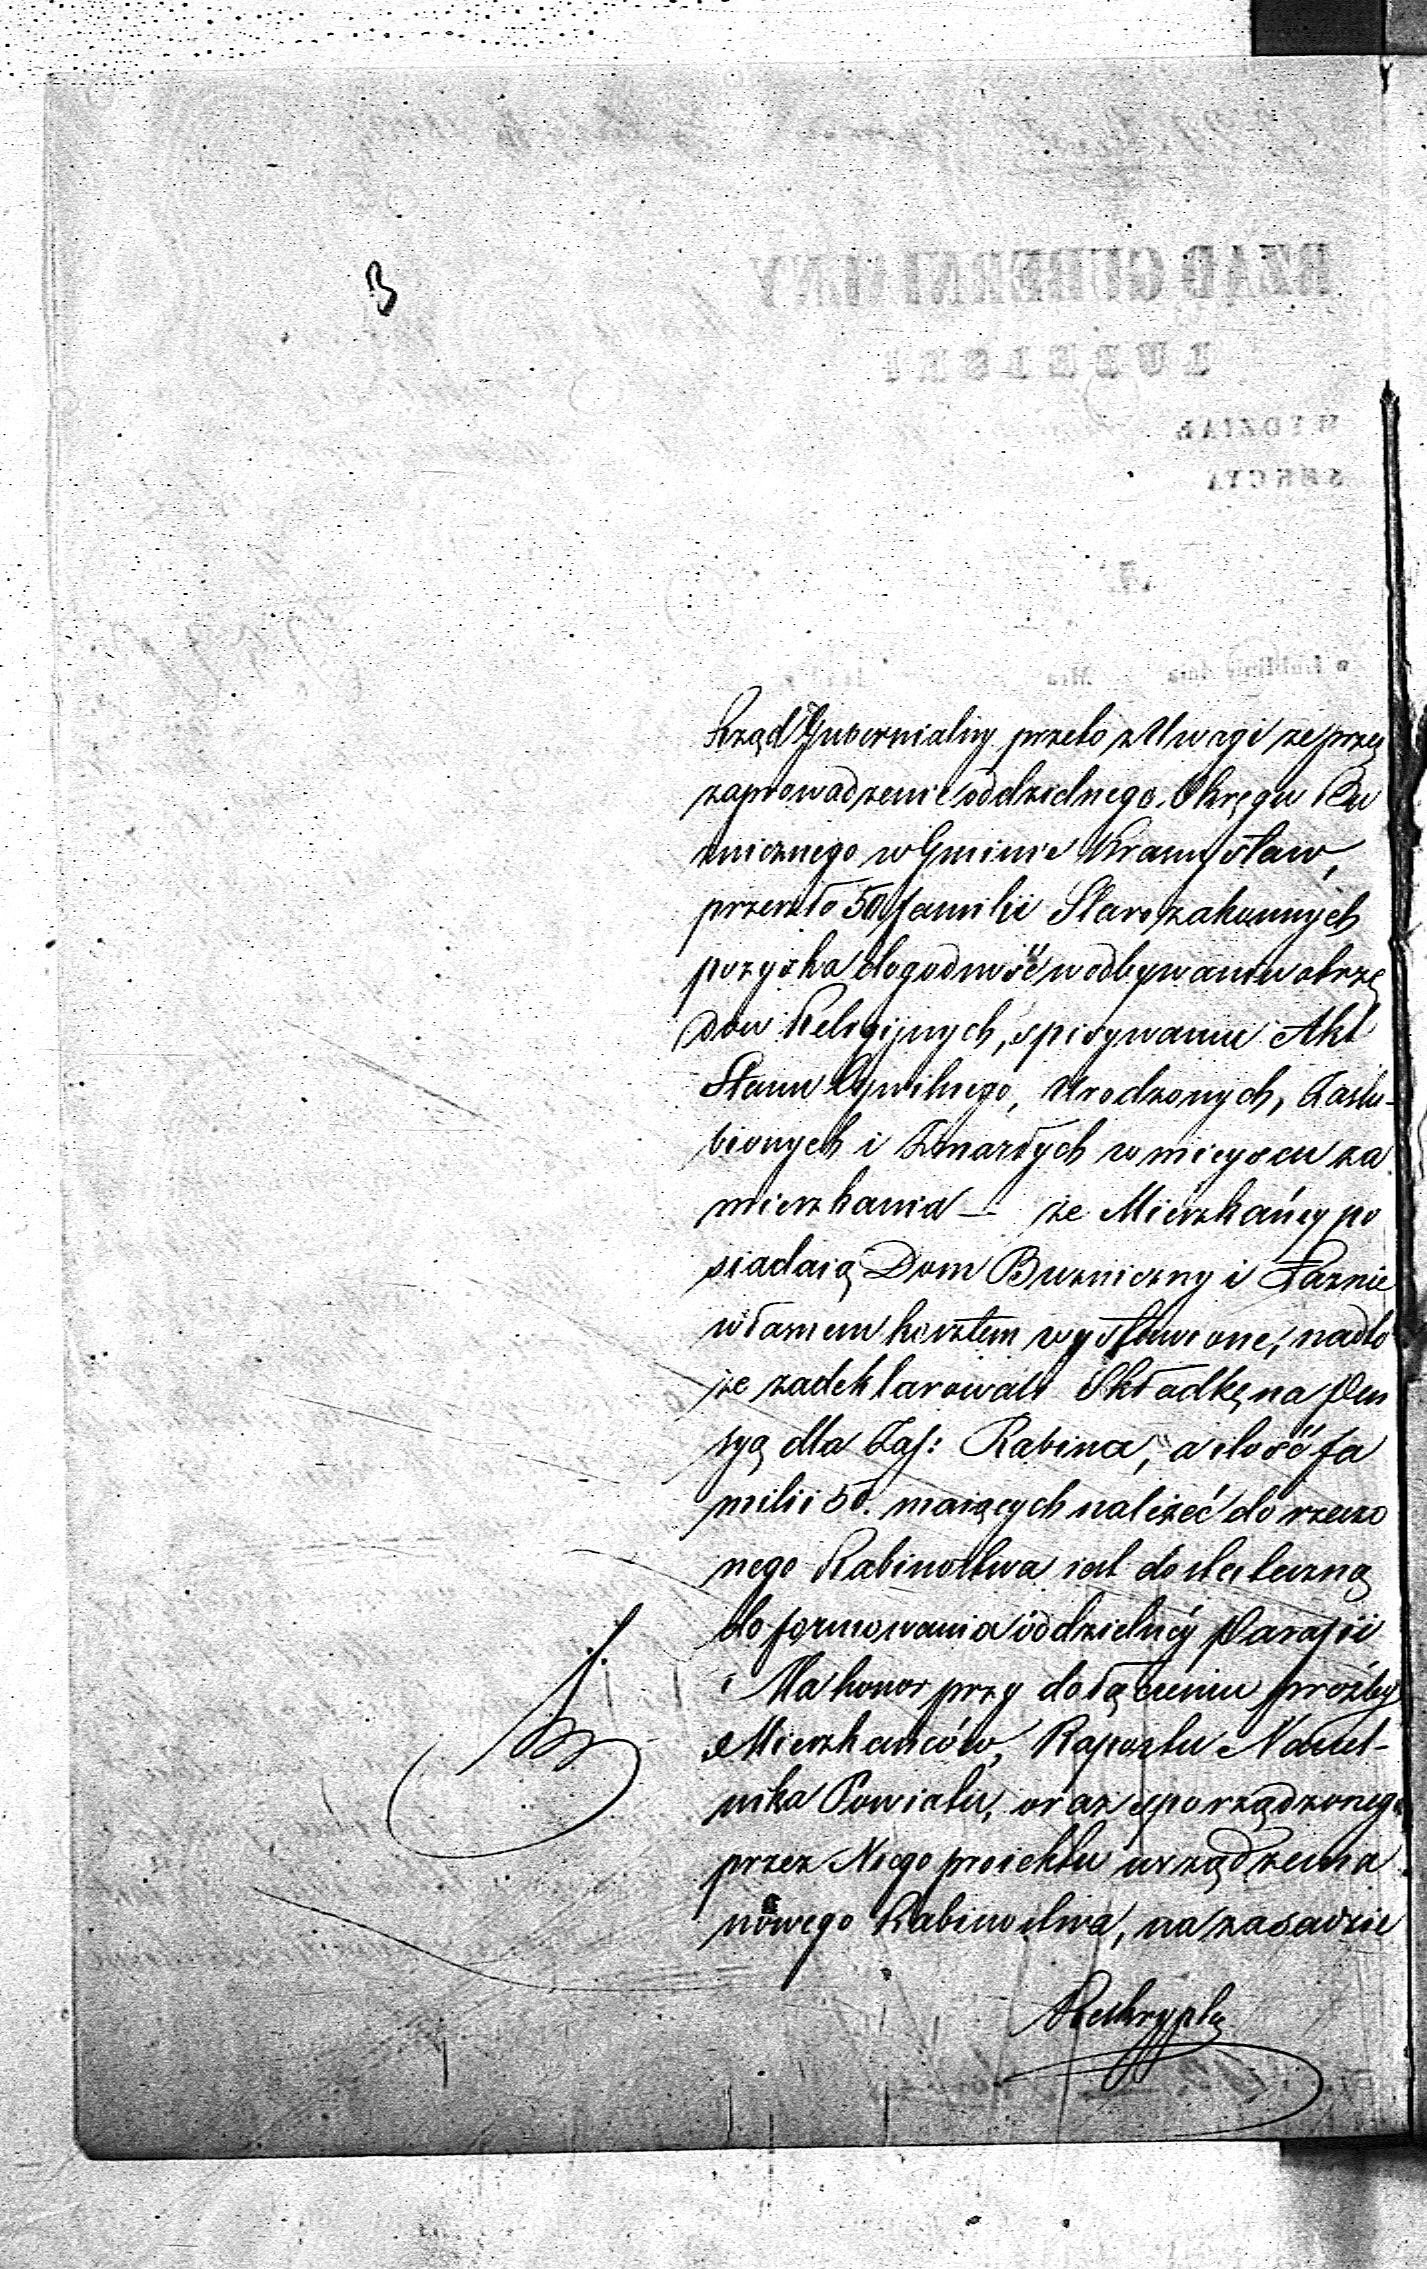 3
Rząd Gubernialny przeto z Uwagi że przez
zaprowadzenie oddzielnego Okręgu Bu
żnicznego w Gminie Krasnystaw,
przeszło 50 familii Starozakonnych
pozyska dogodność w odbywaniu obrzę
dow Religijnych, spisywaniu Akt
Stanu Cywilnego, Urodzonych, Zaślu-
bionych i Zmarłych w mieyscu za
mieszkania — że Mieszkańcy po
siadaią Dom Bużniczny i Łaznie
własnem kosztem wystawione, nadto
że zadeklarowali Składkę na Pen
syą dla Zas: Rabina, a ilość fa
milii 50. maiących należeć do rzeczo
nego Rabinostwa iest dostateczną
do formowania oddzielnéy Parafii
Ma honor przy dołączeniu prożby
Mieszkańców, Raportu Naczel-
nika Powiatu, oraz sporządzonego
przez Niego proiektu urządzenia
nowego Rabinostwa, na zasadzie
Reskryptu